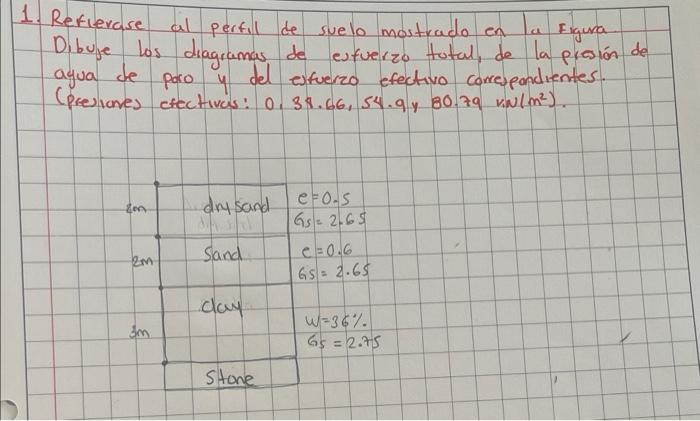 1. Refierase al perfil de suelo mostrado en la Figura
Dibuje los diagramas de esfuerzo total, de la presión de
agua de poro y del esfuerzo efectivo correspondientes.
(presiones efectivas: 0, 38.66, 54.9 y 80.79 kN/m²).
2m
dry sand
e=0.5
Gs=2.65
2m
Sand
e=0.6
Gs=2.65
3m
clay
W=36%.
Gs=2.75
Stone